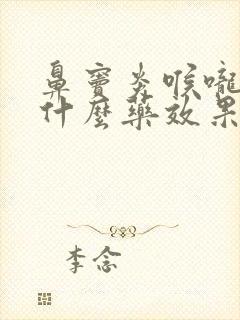 鼻窦炎喉嚨
什麼藥效果
李念